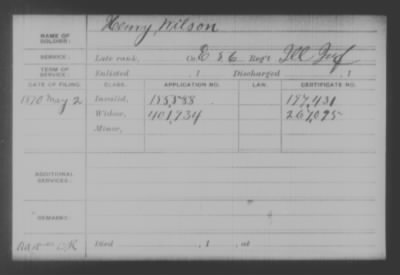 NAME OF SOLDIER: Henry Wilson
SERVICE: Late rank, Co. E & C Reg't Ill Inf
TERM OF SERVICE: Enlisted , 1 Discharged , 1
DATE OF FILING. CLASS. APPLICATION NO. LAW. CERTIFICATE NO.
1870 May 2 Invalid, 187,431
Widow, 401,734 267,095
Minor,
ADDITIONAL SERVICES:
REMARKS:
Died , 1 , at